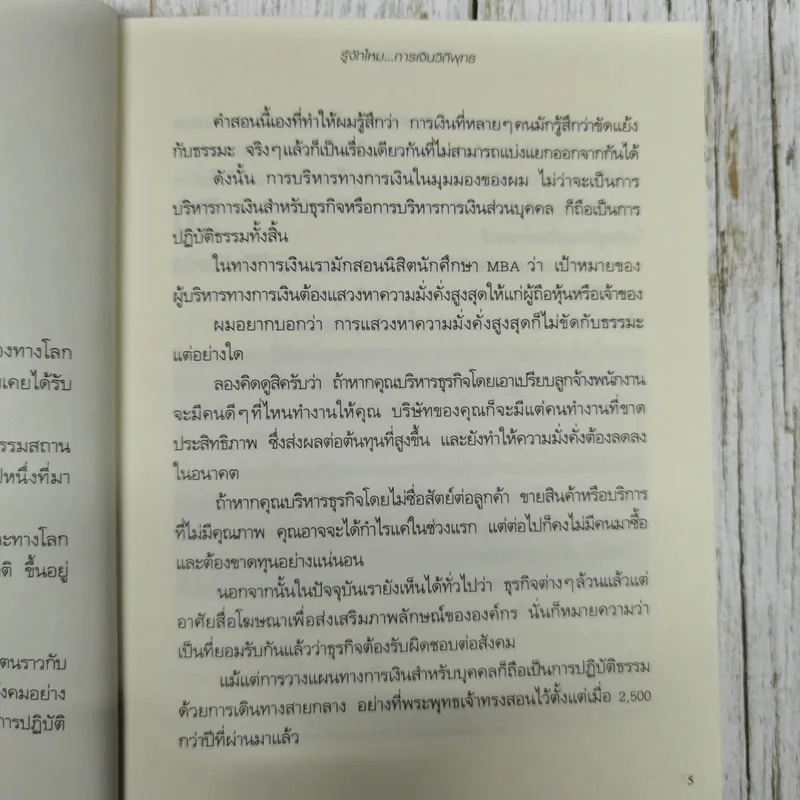 องทางโลก
เคยได้รับ
ธรรมสถาน
หนึ่งที่มา
ะทางโลก
ติ ขึ้นอยู่
ตนราวกับ
ังคมอย่าง
การปฏิบัติ
รู้จักไหม...การเงินวิถีพุทธ
คำสอนนี้เองที่ทำให้ผมรู้สึกว่า การเงินที่หลายๆคนมักรู้สึกว่าขัดแย้ง
กับธรรมะ จริงๆแล้วก็เป็นเรื่องเดียวกันที่ไม่สามารถแบ่งแยกออกจากกันได้
ดังนั้น การบริหารทางการเงินในมุมมองของผม ไม่ว่าจะเป็นการ
บริหารการเงินสำหรับธุรกิจหรือการบริหารการเงินส่วนบุคคล ก็ถือเป็นการ
ปฏิบัติธรรมทั้งสิ้น
ในทางการเงินเรามักสอนนิสิตนักศึกษา MBA ว่า เป้าหมายของ
ผู้บริหารทางการเงินต้องแสวงหาความมั่งคั่งสูงสุดให้แก่ผู้ถือหุ้นหรือเจ้าของ
ผมอยากบอกว่า การแสวงหาความมั่งคั่งสูงสุดก็ไม่ขัดกับธรรมะ
แต่อย่างใด
ลองคิดดูสิครับว่า ถ้าหากคุณบริหารธุรกิจโดยเอาเปรียบลูกจ้างพนักงาน
จะมีคนดีๆที่ไหนทำงานให้คุณ บริษัทของคุณก็จะมีแต่คนทำงานที่ขาด
ประสิทธิภาพ ซึ่งส่งผลต่อต้นทุนที่สูงขึ้น และยังทำให้ความมั่งคั่งต้องลดลง
ในอนาคต
ถ้าหากคุณบริหารธุรกิจโดยไม่ซื่อสัตย์ต่อลูกค้า ขายสินค้าหรือบริการ
ที่ไม่มีคุณภาพ คุณอาจจะได้กำไรแค่ในช่วงแรก แต่ต่อไปก็คงไม่มีคนมาซื้อ
และต้องขาดทุนอย่างแน่นอน
นอกจากนั้นในปัจจุบันเรายังเห็นได้ทั่วไปว่า ธุรกิจต่างๆล้วนแล้วแต่
อาศัยสื่อโฆษณาเพื่อส่งเสริมภาพลักษณ์ขององค์กร นั่นก็หมายความว่า
เป็นที่ยอมรับกันแล้วว่าธุรกิจต้องรับผิดชอบต่อสังคม
แม้แต่การวางแผนทางการเงินสำหรับบุคคลก็ถือเป็นการปฏิบัติธรรม
ด้วยการเดินทางสายกลาง อย่างที่พระพุทธเจ้าทรงสอนไว้ตั้งแต่เมื่อ 2,500
กว่าปีที่ผ่านมาแล้ว
5